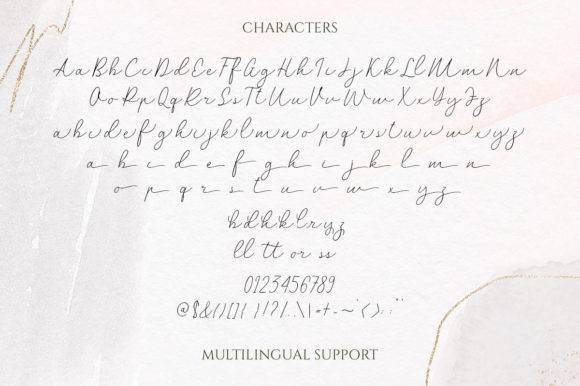 CHARACTERS
Aa Bb Cc Dd Ee Ff Gg Hh Ii Jj Kk Ll Mm Nn
Oo Pp Qq Rr Ss Tt Uu Vv Ww Xx Yy Zz
a b c d e f g h i j k l m n o p q r s t u v w x y z
a b c d e f g h i j k l m n
o p q r s t u v w x y z
b d h k l r y z
ll tt or ss
0123456789
@$&()[]{}!?/|.,\|=+-~
MULTILINGUAL SUPPORT